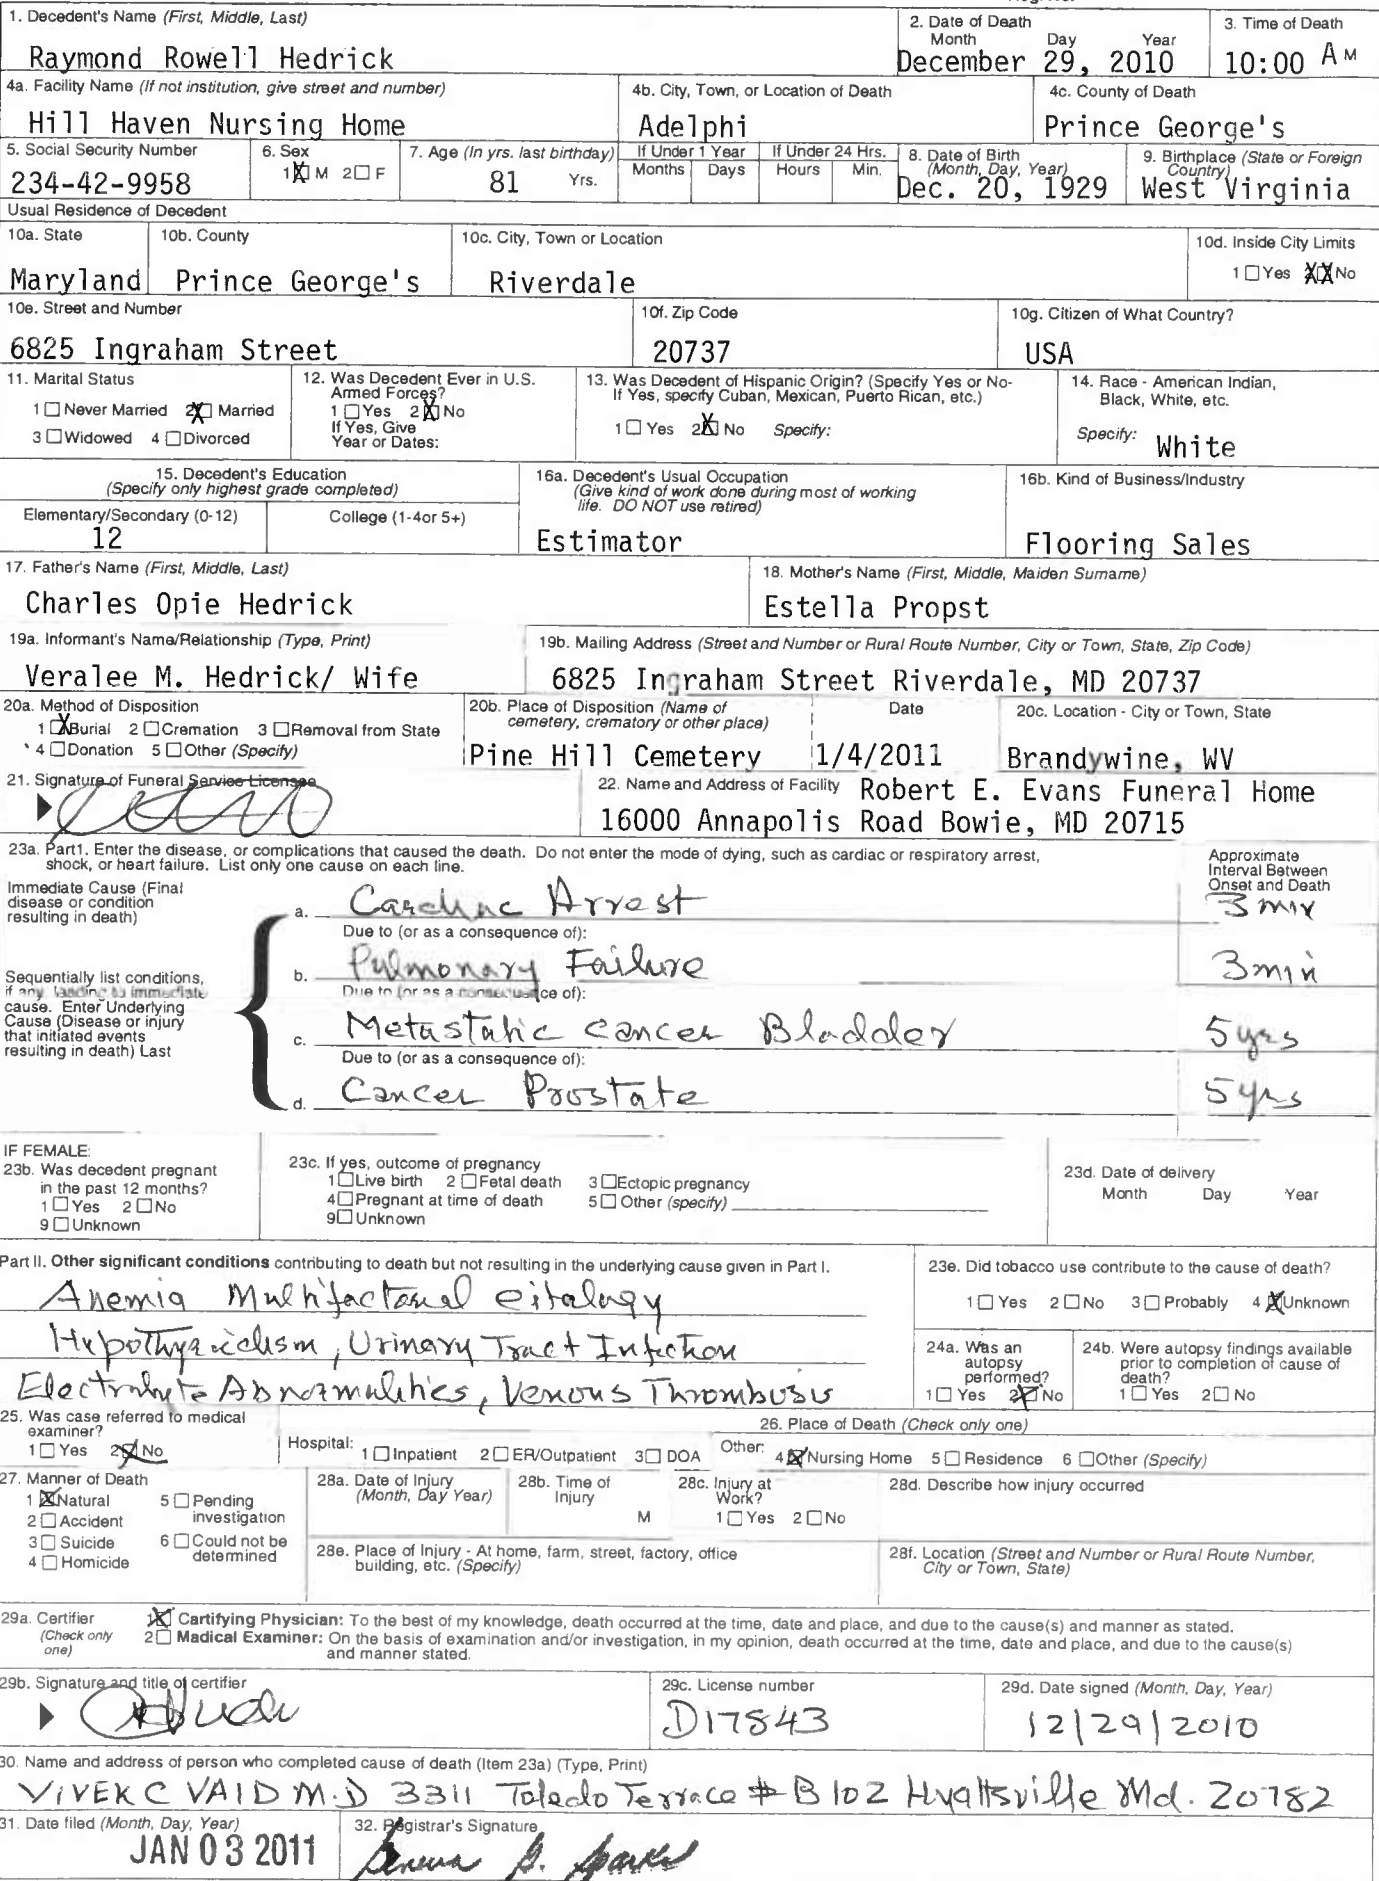 1. Decedent's Name (First, Middle, Last)
Raymond Rowell Hedrick
2. Date of Death
Month Day Year
December 29, 2010
3. Time of Death
10:00 A M
4a. Facility Name (If not institution, give street and number)
Hill Haven Nursing Home
4b. City, Town, or Location of Death
Adelphi
4c. County of Death
Prince George's
5. Social Security Number
234-42-9958
6. Sex
1☒ M 2☐ F
7. Age (In yrs. last birthday)
81 Yrs.
If Under 1 Year
Months Days
If Under 24 Hrs.
Hours Min.
8. Date of Birth
(Month, Day, Year)
Dec. 20, 1929
9. Birthplace (State or Foreign
Country)
West Virginia
Usual Residence of Decedent
10a. State
Maryland
10b. County
Prince George's
10c. City, Town or Location
Riverdale
10d. Inside City Limits
1 ☐ Yes 2☒ No
10e. Street and Number
6825 Ingraham Street
10f. Zip Code
20737
10g. Citizen of What Country?
USA
11. Marital Status
1 ☐ Never Married 2☒ Married
3 ☐ Widowed 4 ☐ Divorced
12. Was Decedent Ever in U.S.
Armed Forces?
1 ☐ Yes 2☒ No
If Yes, Give
Year or Dates:
13. Was Decedent of Hispanic Origin? (Specify Yes or No-
If Yes, specify Cuban, Mexican, Puerto Rican, etc.)
1 ☐ Yes 2☒ No Specify:
14. Race - American Indian,
Black, White, etc.
Specify: White
15. Decedent's Education
(Specify only highest grade completed)
Elementary/Secondary (0-12)
12
College (1-4or 5+)
16a. Decedent's Usual Occupation
(Give kind of work done during most of working
life. DO NOT use retired)
Estimator
16b. Kind of Business/Industry
Flooring Sales
17. Father's Name (First, Middle, Last)
Charles Opie Hedrick
18. Mother's Name (First, Middle, Maiden Surname)
Estella Propst
19a. Informant's Name/Relationship (Type, Print)
Veralee M. Hedrick/ Wife
19b. Mailing Address (Street and Number or Rural Route Number, City or Town, State, Zip Code)
6825 Ingraham Street Riverdale, MD 20737
20a. Method of Disposition
1 ☒ Burial 2 ☐ Cremation 3 ☐ Removal from State
4 ☐ Donation 5 ☐ Other (Specify)
20b. Place of Disposition (Name of
cemetery, crematory or other place)
Pine Hill Cemetery
Date
1/4/2011
20c. Location - City or Town, State
Brandywine, WV
21. Signature of Funeral Service Licensee
22. Name and Address of Facility Robert E. Evans Funeral Home
16000 Annapolis Road Bowie, MD 20715
23a. Part1. Enter the disease, or complications that caused the death. Do not enter the mode of dying, such as cardiac or respiratory arrest,
shock, or heart failure. List only one cause on each line.
Approximate
Interval Between
Onset and Death
Immediate Cause (Final
disease or condition
resulting in death)
a. Cardiac Arrest 3 min
Due to (or as a consequence of):
b. Pulmonary Failure 3 min
Due to (or as a consequence of):
Sequentially list conditions,
if any, leading to immediate
cause. Enter Underlying
Cause (Disease or injury
that initiated events
resulting in death) Last
c. Metastatic cancer Bladder 5 yrs
Due to (or as a consequence of):
d. Cancer Prostate 5 yrs
IF FEMALE:
23b. Was decedent pregnant
in the past 12 months?
1 ☐ Yes 2 ☐ No
9 ☐ Unknown
23c. If yes, outcome of pregnancy
1 ☐ Live birth 2 ☐ Fetal death 3 ☐ Ectopic pregnancy
4 ☐ Pregnant at time of death 5 ☐ Other (specify)
9 ☐ Unknown
23d. Date of delivery
Month Day Year
Part II. Other significant conditions contributing to death but not resulting in the underlying cause given in Part I.
Anemia Multifactorial eitology
Hypothyroidism, Urinary Tract Infection
Electrolyte Abnormalities, Venous Thrombosis
23e. Did tobacco use contribute to the cause of death?
1 ☐ Yes 2 ☐ No 3 ☐ Probably 4 ☒ Unknown
24a. Was an
autopsy
performed?
1 ☐ Yes 2☒ No
24b. Were autopsy findings available
prior to completion of cause of
death?
1 ☐ Yes 2 ☐ No
25. Was case referred to medical
examiner?
1 ☐ Yes 2☒ No
26. Place of Death (Check only one)
Hospital: 1 ☐ Inpatient 2 ☐ ER/Outpatient 3 ☐ DOA Other: 4 ☒ Nursing Home 5 ☐ Residence 6 ☐ Other (Specify)
27. Manner of Death
1 ☒ Natural 5 ☐ Pending
investigation
2 ☐ Accident
3 ☐ Suicide 6 ☐ Could not be
determined
4 ☐ Homicide
28a. Date of Injury
(Month, Day Year)
28b. Time of
Injury
M
28c. Injury at
Work?
1 ☐ Yes 2 ☐ No
28d. Describe how injury occurred
28e. Place of Injury - At home, farm, street, factory, office
building, etc. (Specify)
28f. Location (Street and Number or Rural Route Number,
City or Town, State)
29a. Certifier
(Check only
one)
1☒ Certifying Physician: To the best of my knowledge, death occurred at the time, date and place, and due to the cause(s) and manner as stated.
2 ☐ Medical Examiner: On the basis of examination and/or investigation, in my opinion, death occurred at the time, date and place, and due to the cause(s)
and manner stated.
29b. Signature and title of certifier
29c. License number
D17843
29d. Date signed (Month, Day, Year)
12/29/2010
30. Name and address of person who completed cause of death (Item 23a) (Type, Print)
VIVEK C VAID M.D 3311 Toledo Terrace # B 102 Hyattsville Md. 20782
31. Date filed (Month, Day, Year)
JAN 03 2011
32. Registrar's Signature